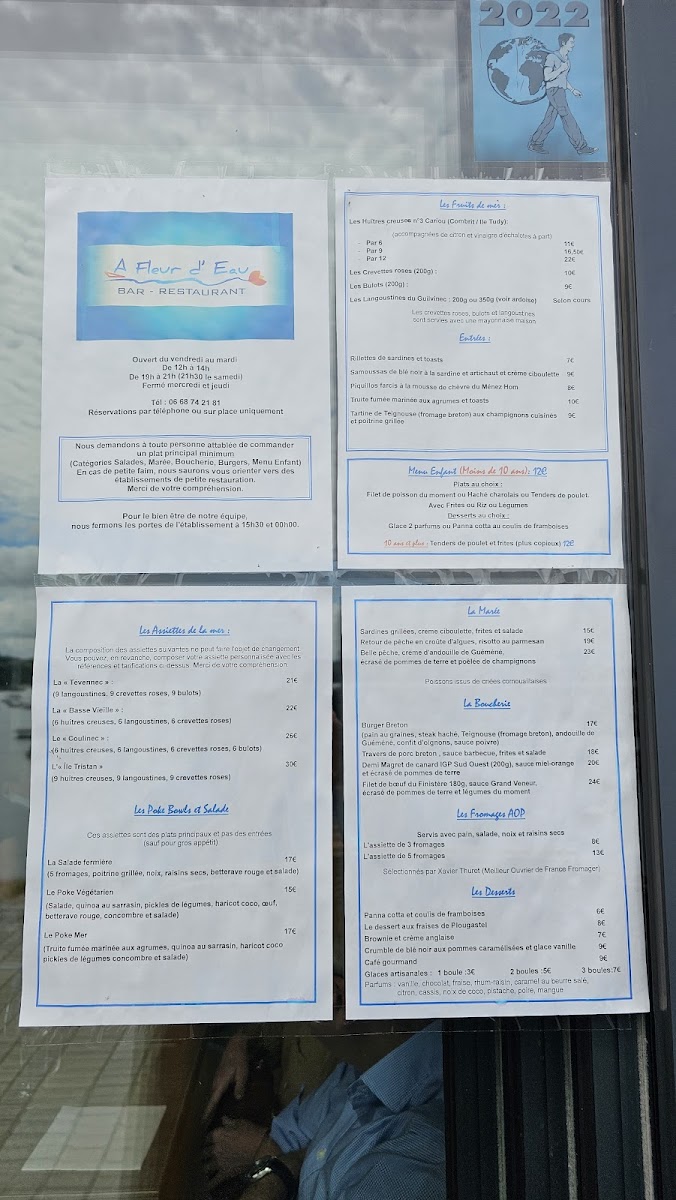 2022
A Fleur d'Eau
BAR - RESTAURANT
Ouvert du vendredi au mardi
De 12h à 14h
De 19h à 21h (21h30 le samedi)
Fermé mercredi et jeudi
Tél : 06 68 74 21 81
Réservations par téléphone ou sur place uniquement
Nous demandons à toute personne attablée de commander
un plat principal minimum
(Catégories Salades, Marée, Boucherie, Burgers, Menu Enfant)
En cas de petite faim, nous saurons vous orienter vers des
établissements de petite restauration.
Merci de votre compréhension.
Pour le bien être de notre équipe,
nous fermons les portes de l'établissement à 15h30 et 00h00.
Les Fruits de mer :
Les Huîtres creuses n°3 Cariou (Combrit / Ile Tudy):
(accompagnées de citron et vinaigre d'échalotes à part)
- Par 6 11€
- Par 9 16,50€
- Par 12 22€
Les Crevettes roses (200g) : 10€
Les Bulots (200g) : 9€
Les Langoustines du Guilvinec : 200g ou 350g (voir ardoise) Selon cours
Les crevettes roses, bulots et langoustines
sont servies avec une mayonnaise maison
Entrées :
Rillettes de sardines et toasts 7€
Samoussas de blé noir à la sardine et artichaut et crème ciboulette 9€
Piquillos farcis à la mousse de chèvre du Ménez Hom 8€
Truite fumée marinée aux agrumes et toasts 10€
Tartine de Teignouse (fromage breton) aux champignons cuisinés 9€
et poitrine grillée
Menu Enfant (Moins de 10 ans): 12€
Plats au choix :
Filet de poisson du moment ou Haché charolais ou Tenders de poulet.
Avec Frites ou Riz ou Légumes
Desserts au choix :
Glace 2 parfums ou Panna cotta au coulis de framboises
10 ans et plus : Tenders de poulet et frites (plus copieux) 12€
Les Assiettes de la mer :
La composition des assiettes suivantes ne peut faire l'objet de changement.
Vous pouvez, en revanche, composer votre assiette personnalisée avec les
références et tarifications ci-dessus. Merci de votre compréhension
La « Tevennec » : 21€
(9 langoustines, 9 crevettes roses, 9 bulots)
La « Basse Vieille » : 22€
(6 huîtres creuses, 6 langoustines, 6 crevettes roses)
Le « Coulinec » : 26€
(6 huîtres creuses, 6 langoustines, 6 crevettes roses, 6 bulots)
L'« Île Tristan » 30€
(9 huîtres creuses, 9 langoustines, 9 crevettes roses)
Les Poke Bowls et Salade
Ces assiettes sont des plats principaux et pas des entrées
(sauf pour gros appétit)
La Salade fermière 17€
(5 fromages, poitrine grillée, noix, raisins secs, betterave rouge et salade)
Le Poke Végétarien 15€
(Salade, quinoa au sarrasin, pickles de légumes, haricot coco, œuf,
betterave rouge, concombre et salade)
Le Poke Mer 17€
(Truite fumée marinée aux agrumes, quinoa au sarrasin, haricot coco
pickles de légumes concombre et salade)
La Marée
Sardines grillées, crème ciboulette, frites et salade 15€
Retour de pêche en croûte d'algues, risotto au parmesan 19€
Belle pêche, crème d'andouille de Guémené, 23€
écrasé de pommes de terre et poêlée de champignons
Poissons issus de criées cornouaillaises
La Boucherie
Burger Breton 17€
(pain au graines, steak haché, Teignouse (fromage breton), andouille de
Guémené, confit d'oignons, sauce poivre)
Travers de porc breton , sauce barbecue, frites et salade 18€
Demi Magret de canard IGP Sud Ouest (200g), sauce miel-orange 20€
et écrasé de pommes de terre
Filet de bœuf du Finistère 180g, sauce Grand Veneur, 24€
écrasé de pommes de terre et légumes du moment
Les Fromages AOP
Servis avec pain, salade, noix et raisins secs
L'assiette de 3 fromages 8€
L'assiette de 5 fromages 13€
Sélectionnés par Xavier Thuret (Meilleur Ouvrier de France Fromager)
Les Desserts
Panna cotta et coulis de framboises 6€
Le dessert aux fraises de Plougastel 8€
Brownie et crème anglaise 7€
Crumble de blé noir aux pommes caramélisées et glace vanille 9€
Café gourmand 9€
Glaces artisanales : 1 boule :3€ 2 boules :5€ 3 boules:7€
Parfums : vanille, chocolat, fraise, rhum-raisin, caramel au beurre salé,
citron, cassis, noix de coco, pistache, poire, mangue